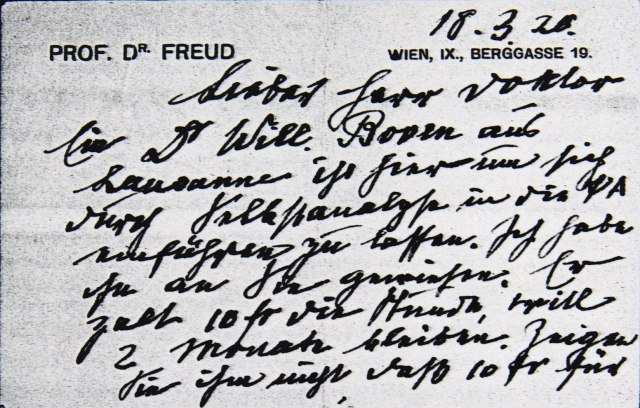 18.3.20.
PROF. DR. FREUD WIEN, IX., BERGGASSE 19.
Lieber Herr Doktor
Ein Dr Will. Boven aus
Lausanne ist hier um sich
durch Selbstanalyse in die ΨA
einführen zu lassen. Ich habe
ihn an Sie gewiesen. Er
zalt 10 fr die Stunde, will
2 Monate bleiben. Zeigen
Sie ihm nicht, daß 10 fr für